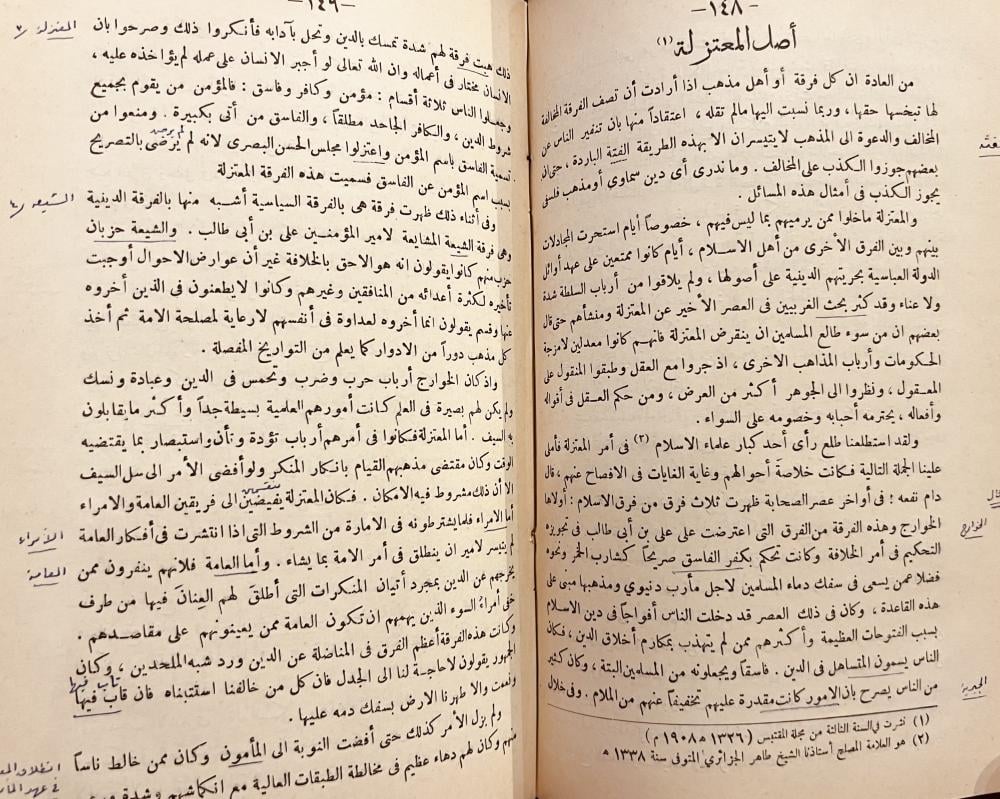 — ١٤٨ —
أصل المعتزلة (١)
من العادة ان كل فرقة أو أهل مذهب اذا أرادت أن تصف الفرقة المخالفة
لها تبخسها حقها ، وربما نسبت اليها مالم تقله ، اعتقاداً منها بان تنفير الناس عن
المخالف والدعوة الى المذهب لايتيسران الا بهذه الطريقة الغتة الباردة ، حتى ان
بعضهم جوزوا الكذب على المخالف . وما ندرى أى دين سماوى أومذهب فلسفى
يجوز الكذب فى أمثال هذه المسائل .
والمعتزلة ماخلوا ممن يرميهم بما ليس فيهم ، خصوصاً أيام استحرت المجادلات
بينهم وبين الفرق الأخرى من أهل الاسلام ، أيام كانوا ممتعين على عهد أوائل
الدولة العباسية بحريتهم الدينية على أصولها ، ولم يلاقوا من أرباب السلطة شدة
ولا عناء وقد كثر بحث الغربيين فى العصر الأخير عن المعتزلة ومنشأهم حتى قال
بعضهم ان من سوء طالع المسلمين ان ينقرض المعتزلة فانهم كانوا معدلين لامزجة
الحكومات وأرباب المذاهب الاخرى ، اذ جروا مع العقل وطبقوا المنقول على
المعقول ، ونظروا الى الجوهر أكثر من العرض ، ومن حكم العقل فى أقواله
وأفعاله ، يحترمه أحبابه وخصومه على السواء .
ولقد استطلعنا طلع رأى أحد كبار علماء الاسلام (٢) فى أمر المعتزلة فأملى
علينا الجملة التالية فكانت خلاصة أحوالهم وغاية الغايات فى الافصاح عنهم ، قال
دام نفعه : فى أواخر عصر الصحابة ظهرت ثلاث فرق من فرق الاسلام : أولاها
الخوارج وهذه الفرقة من الفرق التى اعترضت على على بن أبى طالب فى تجويزه
التحكيم فى أمر الخلافة وكانت تحكم بكفر الفاسق صريحاً كشارب الخمر ونحوه
فضلا عمن يسعى فى سفك دماء المسلمين لاجل مأرب دنيوي ومذهبها مبنى على
هذه القاعدة ، وكان فى ذلك العصر قد دخلت الناس أفواجاً فى دين الاسلام
بسبب الفتوحات العظيمة وأكثرهم ممن لم يتهذب بمكارم أخلاق الدين ، فكان
الناس يسمون المتساهل فى الدين . فاسقاً ويجعلونه من المسلمين البتة ، وكان كثير
من الناس يصرح بان الامور كانت مقدرة عليهم تخفيفاً عنهم من الملام . وفى خلال
(١) نشرت في السنة الثالثة من مجلة المقتبس (١٣٢٦ ه ١٩٠٨ م)
(٢) هو العلامة المصلح أستاذنا الشيخ طاهر الجزائري المتوفى سنة ١٣٣٨ ه
الخوارج
الجبرية
— ١٤٩ —
ذلك هبت فرقة لهم شدة تمسك بالدين وتحل بآدابه فأنكروا ذلك وصرحوا بان
الانسان مختار فى أعماله وان الله تعالى لو أجبر الانسان على عمله لم يؤاخذه عليه ،
وجعلوا الناس ثلاثة أقسام : مؤمن وكافر وفاسق : فالمؤمن من يقوم بجميع
شروط الدين ، والكافر الجاحد مطلقاً ، والفاسق من أتى بكبيرة . ومنعوا من
تسمية الفاسق باسم المؤمن واعتزلوا مجالس الحسن البصرى لانه لم يرضى بالتصريح
بسبب اسم المؤمن عن الفاسق فسميت هذه الفرقة المعتزلة
وفى أثناء ذلك ظهرت فرقة هى بالفرقة السياسية أشبه منها بالفرقة الدينية
وهى فرقة الشيعة المشايعة لامير المؤمنين على بن أبى طالب . والشيعة حزبان
حزب منهم كانوا يقولون انه هو الاحق بالخلافة غير أن عوارض الاحوال أوجبت
تأخيره لكثرة أعدائه من المنافقين وغيرهم وكانوا لايطعنون فى الذين أخروه
عنها وقسم يقولون انما أخروه لعداوة فى أنفسهم لارعاية لمصلحة الامة ثم أخذ
كل مذهب دوراً من الادوار كما يعلم من التواريخ المفصلة .
واذ كان الخوارج أرباب حرب وضرب وتحمس فى الدين وعبادة ونسك
ولم يكن لهم بصيرة فى العلم كانت أمورهم العلمية بسيطة جداً وأكثر مايقابلون
به السيف . أما المعتزلة فكانوا فى أمرهم أرباب تؤدة وتأن واستبصار بما يقتضيه
الوقت وكان مقتضى مذهبهم القيام بانكار المنكر ولو أفضى الأمر الى سل السيف
الا أن ذلك مشروط فيه الامكان . فكان المعتزلة بغيضين الى فريقين العامة والامراء
أما الامراء فلما يشترطونه فى الامارة من الشروط التى اذا انتشرت فى أفكار العامة
لم يتيسر لامير ان ينطلق فى أمر الامة بما يشاء . وأما العامة فلانهم ينفرون ممن
يخرجهم عن الدين بمجرد أتيان المنكرات التى أطلق لهم العنان فيها من طرف
خفى أمراء السوء الذين يهمهم ان تكون العامة ممن يعينونهم على مقاصدهم .
وكانت هذه الفرقة أعظم الفرق فى المناضلة عن الدين ورد شبه الملحدين ، وكان
الجمهور يقولون لاحاجة لنا الى الجدل فان كل من خالفنا استتبناه فان تاب فيها
ونعمت والا طهرنا الارض بسفك دمه عليها .
ولم يزل الأمر كذلك حتى أفضت النوبة الى المأمون وكان ممن خالط ناساً
منهم وكان لهم دهاء عظيم فى مخالطة الطبقات العالية مع انكماشهم وشدة
المعتزلة /٣
الشيعة /٤
الأمراء
العامة
تاب فبها